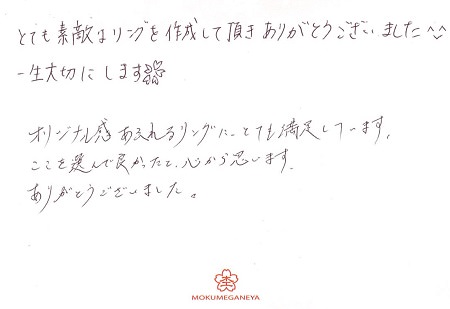 とても素敵なリングを作成して頂きありがとうございました^^
一生大切にします
オリジナル感あふれるリングに、とても満足しています。
ここを選んで良かったと、心から思います。
ありがとうございました。
MOKUMEGANEYA